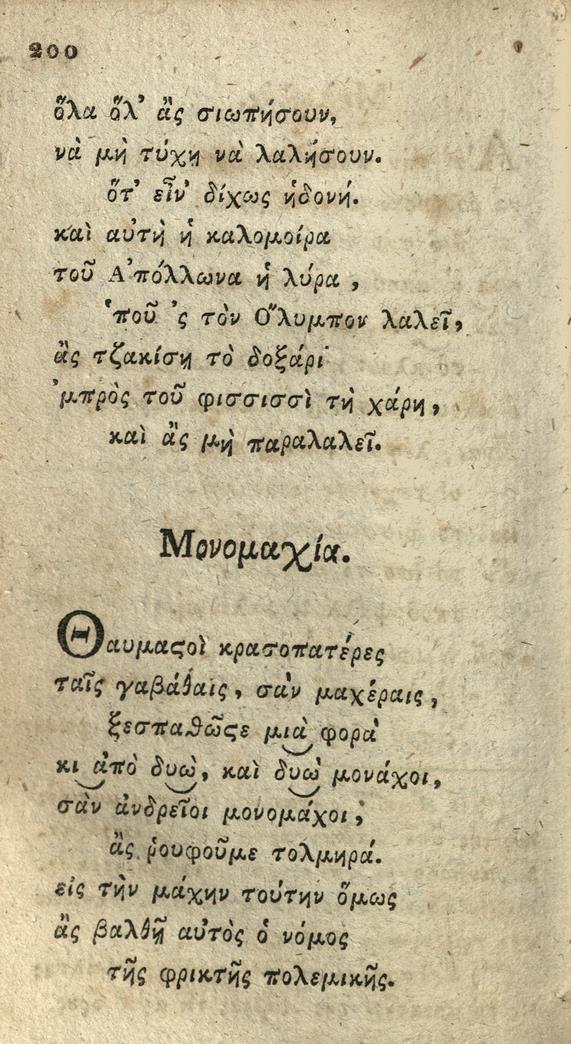 200
ὅλα ὅλ' ἂς σιωπήσουν,
νὰ μὴ τύχῃ νὰ λαλήσουν.
ὅτ' εἶν' δίχως ἡδονή.
καὶ αὐτὴ ἡ καλομοίρα
τοῦ Ἀπόλλωνα ἡ λύρα,
'ποῦ 'ς τὸν Ὄλυμπον λαλεῖ,
ἂς τζακίσῃ τὸ δοξάρι
'μπρὸς τοῦ φισσισσὶ τὴ χάρη,
καὶ ἂς μὴ παραλαλεῖ.
Μονομαχία.
Θαυμαϛοὶ κρασοπατέρες
ταῖς γαβάθαις, σὰν μαχέραις,
ξεσπαθῶϛε μιὰ φορὰ
κι ἀπὸ δυὼ, καὶ δυὼ μονάχοι,
σὰν ἀνδρεῖοι μονομάχοι,
ἂς ῥουφοῦμε τολμηρά.
εἰς τὴν μάχην τούτην ὅμως
ἂς βαλθῇ αὐτὸς ὁ νόμος
τῆς φρικτῆς πολεμικῆς.